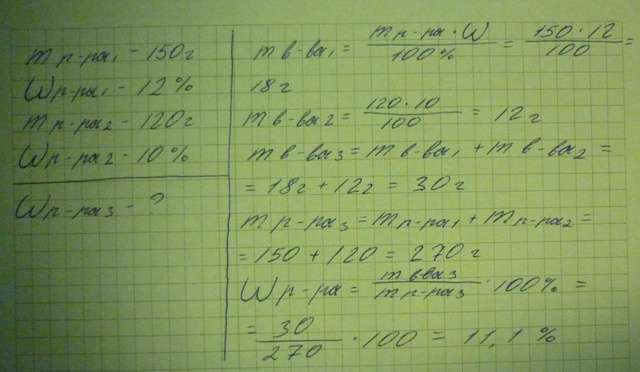 m р-ра₁ - 150г
ω р-ра₁ - 12%
m р-ра₂ - 120г
ω р-ра₂ - 10%
ω р-ра₃ - ?
m в-ва₁ = m р-ра · ω / 100% = 150 · 12 / 100 =
18 г
m в-ва₂ = 120 · 10 / 100 = 12 г
m в-ва₃ = m в-ва₁ + m в-ва₂ =
= 18г + 12г = 30 г
m р-ра₃ = m р-ра₁ + m р-ра₂ =
= 150 + 120 = 270 г
ω р-ра = m вва₃ / m р-ра₃ · 100% =
= 30 / 270 · 100 = 11,1 %